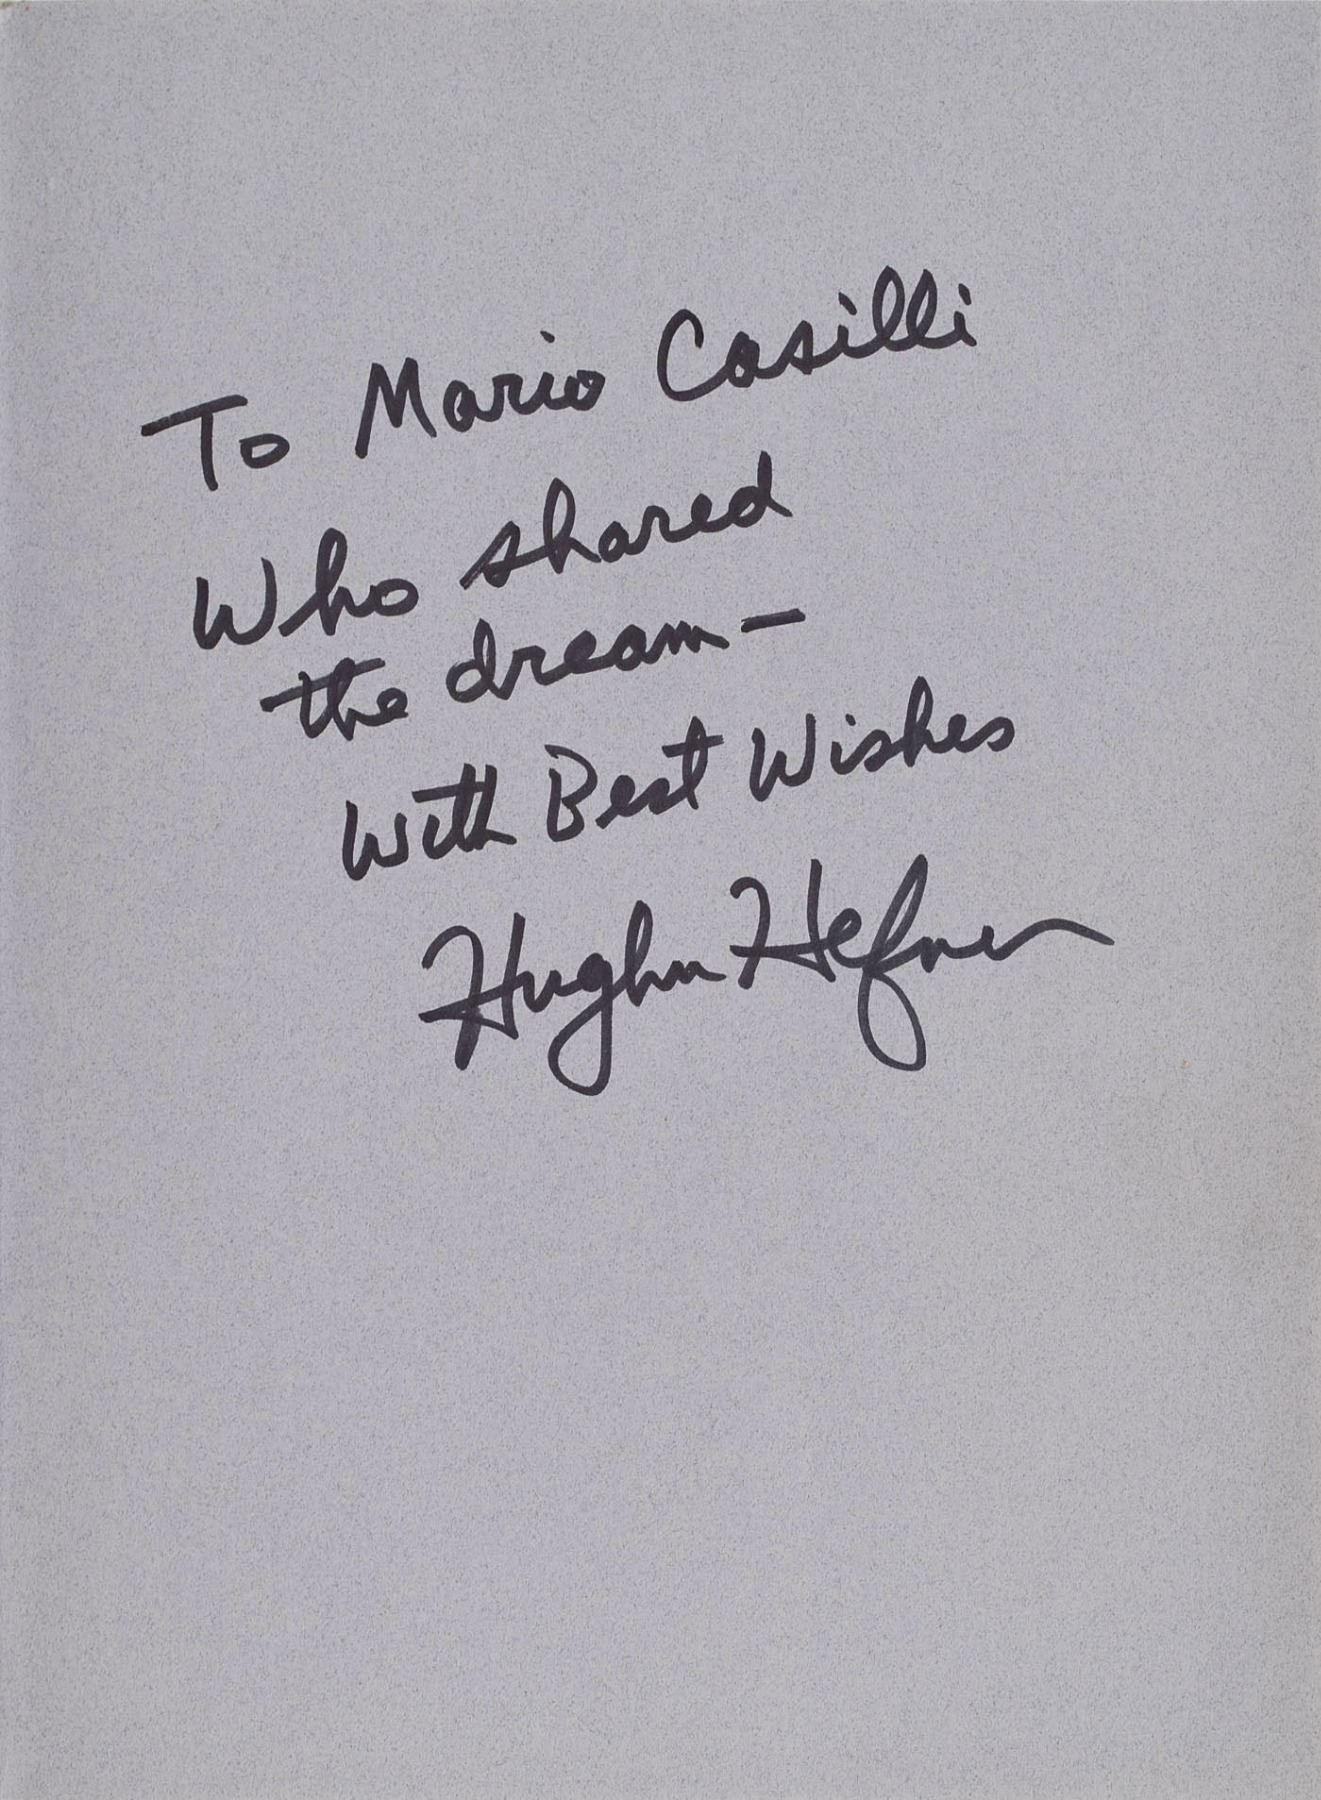 To Mario Casilli
Who shared
the dream –
With Best Wishes
Hugh Hefner